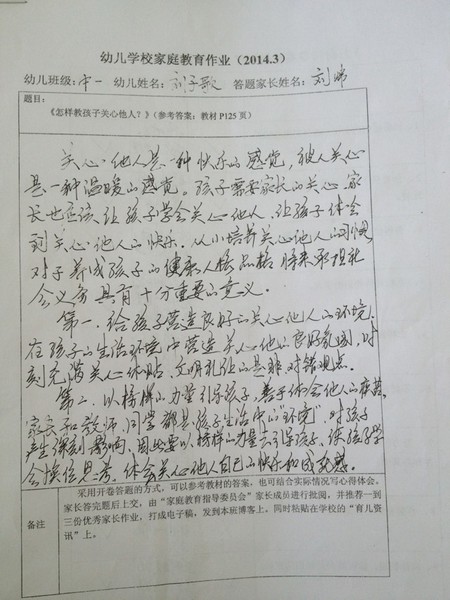 幼儿学校家庭教育作业（2014.3）
幼儿班级：中一 幼儿姓名：刘子歌 答题家长姓名：刘
题目：
《怎样教孩子关心他人？》（参考答案：教材 P125 页）
关心他人是一种快乐的感觉，被人关心
是一种温暖的感觉。孩子需要家长的关心，家
长也应该让孩子学会关心他人，让孩子体会
到关心他人的快乐。从小培养关心他人的习惯
对于养成孩子的健康人格品格将来承担社
会义务具有十分重要的意义。
第一．给孩子营造良好的关心他人的环境．
在孩子的生活环境中营造关心他人的良好氛围，时
刻充满关心体贴、文明礼让的是非对错观点。
第二．以榜样的力量引导孩子，善于体会他人的
家长和教师、同学都是孩子生活中的"环境"，对孩子
产生深刻影响，因此要以榜样的力量去引导孩子，让孩子学
会换位思考，体会关心他人自己的快乐和成就感。
备注
采用开卷答题的方式，可以参考教材的答案，也可结合实际情况写心得体会。
家长答完题后上交，由"家庭教育指导委员会"家长成员进行批阅，并推荐一到
三份优秀家长作业，打成电子稿，发到本班博客上，同时粘贴在学校的"育儿资
讯"上。